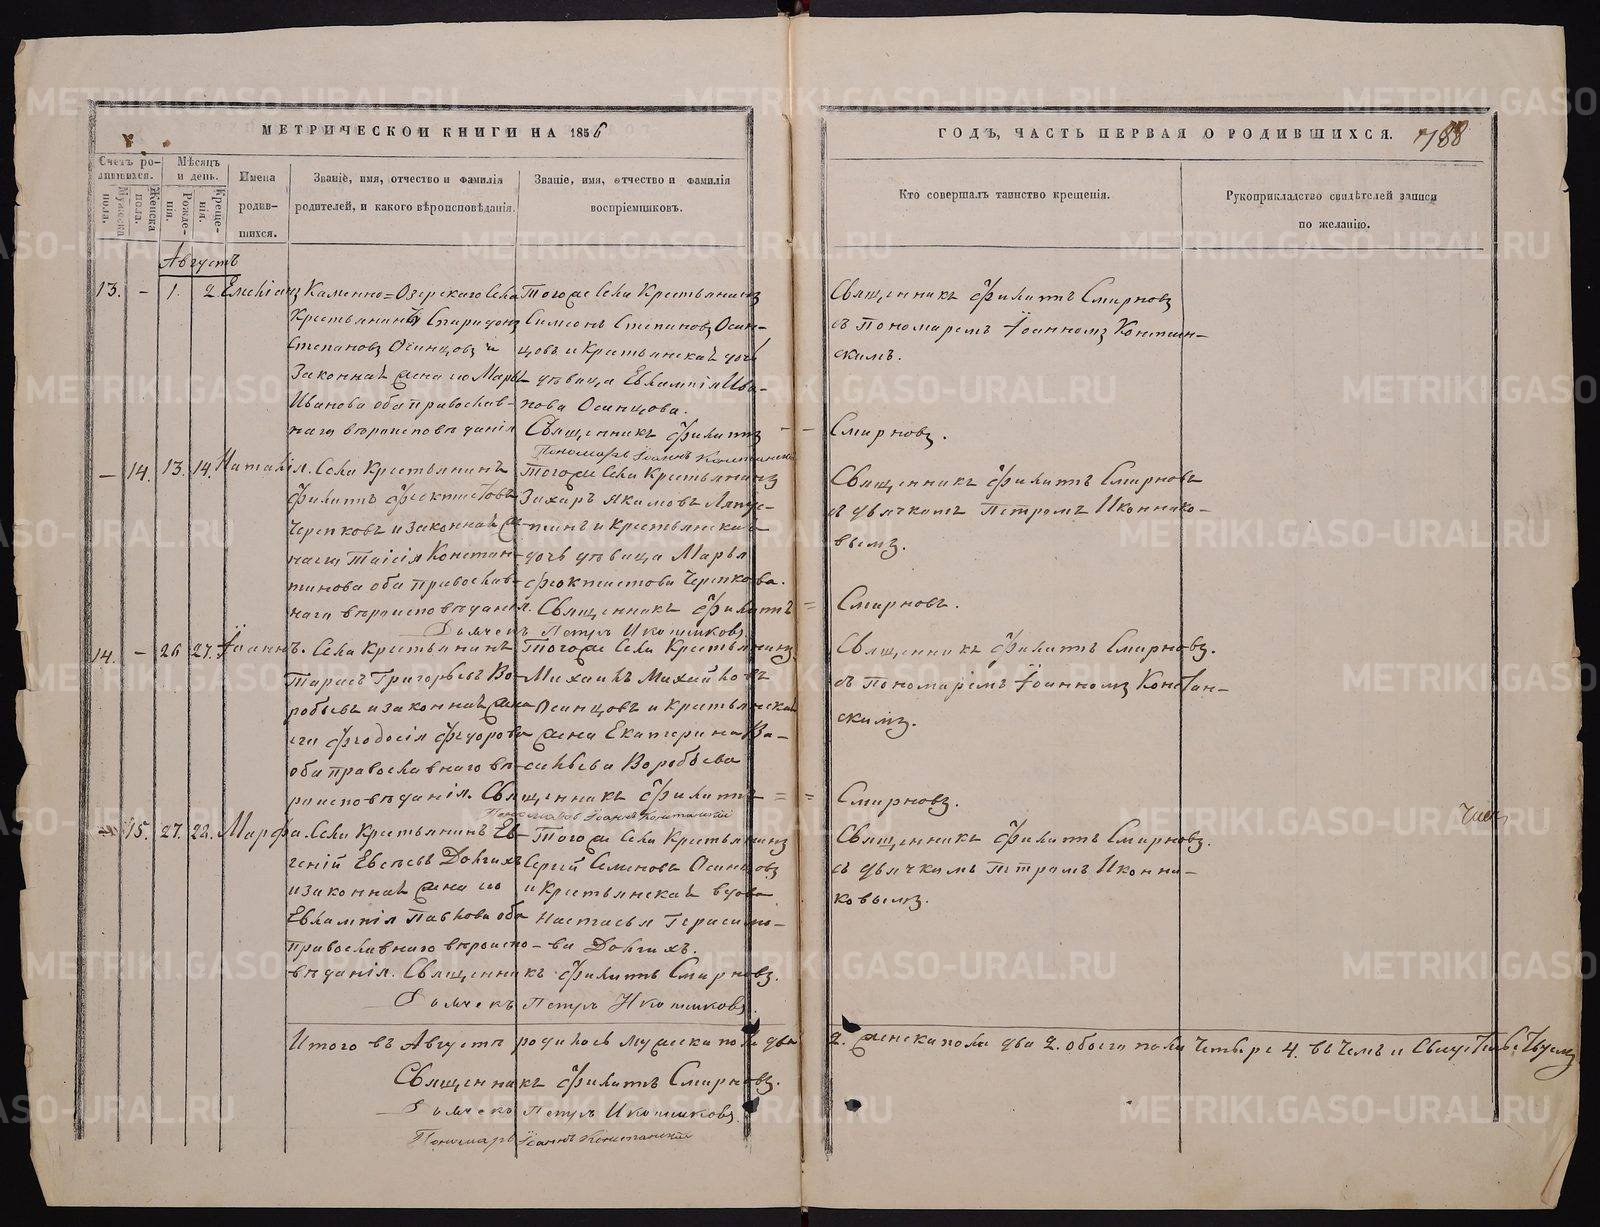 МЕТРИЧЕСКОЙ КНИГИ НА 1856
ГОДЪ, ЧАСТЬ ПЕРВАЯ О РОДИВШИХСЯ.
788
Счетъ родившихся.
Мужеска пола.
Женска пола.
Мѣсяцъ и день.
Рожденія.
Крещенія.
Имена родившихся.
Званіе, имя, отчество и фамилія
родителей, и какого вѣроисповѣданія.
Званіе, имя, отчество и фамилія
воспріемниковъ.
Кто совершалъ таинство крещенія.
Рукоприкладство свидѣтелей записи
по желанію.
Августъ
13. - 1. 2. Емеліанъ
Каменно=Озерскаго Села
Крестьянинъ Спиридонъ
Степановъ Осинцовъ и
Законная жена его Марья
Иванова оба православ-
наго вѣроисповѣданія
Тогоже Села Крестьянинъ
Симеонъ Степановъ Осин-
цовъ и Крестьянская дочь
дѣвица Евлампія Ива-
нова Осинцова.
Священникъ Филиппъ
Пономарь Іоаннъ Констанскій
Священникъ Филиппъ Смирновъ
съ Пономаремъ Іоанномъ Констан-
скимъ.
Смирновъ.
- 14. 13. 14. Наталія.
Села Крестьянинъ
Филиппъ Феоктистовъ
Черепковъ и законная же-
на его Таисія Констан-
тинова оба православ-
наго вѣроисповѣданія.
Тогоже Села Крестьянинъ
Захаръ Якимовъ
и Крестьянская
дочь дѣвица Марья
Феоктистова Черепкова.
Священникъ Филиппъ
Дьячекъ Петръ Иконниковъ
Священникъ Филиппъ Смирновъ
съ дьячкомъ Петромъ Иконнико-
вымъ.
Смирновъ.
14. - 26 27. Іоаннъ.
Села Крестьянинъ
Тарасъ Григорьевъ Во-
робьевъ и законная жена
его Феодосія Феодорова
оба православнаго вѣ-
роисповѣданія.
Тогоже Села Крестьянинъ
Михаилъ Михайловъ
Осинцовъ и Крестьянская
жена Екатерина Ва-
сильева Воробьева
Священникъ Филиппъ
Пономарь Іоаннъ Констанскій
Священникъ Филиппъ Смирновъ.
съ пономаремъ Іоанномъ Констан-
скимъ.
Смирновъ.
- 15. 27. 28. Марфа.
Села Крестьянинъ Ев-
геній Евсеевъ Долгихъ
и законная жена его
Евлампія Павлова оба
православнаго вѣроиспо-
вѣданія.
Тогоже Села Крестьянинъ
Сергій Семеновъ Осинцовъ
и Крестьянская вдова
Настасья Герасимо-
ва Долгихъ.
Священникъ Филиппъ Смирновъ.
Дьячекъ Петръ Иконниковъ
Священникъ Филиппъ Смирновъ.
съ дьячкомъ Петромъ Иконни-
ковымъ.
Итого въ Августѣ родилось мужеска пола два 2. женска пола два 2. обоего пола четыре 4. въ чемъ и Свидѣтельствуемъ
Священникъ Филиппъ Смирновъ.
Дьячекъ Петръ Иконниковъ
Пономарь Іоаннъ Констанскій
METRIKI.GASO-URAL.RU